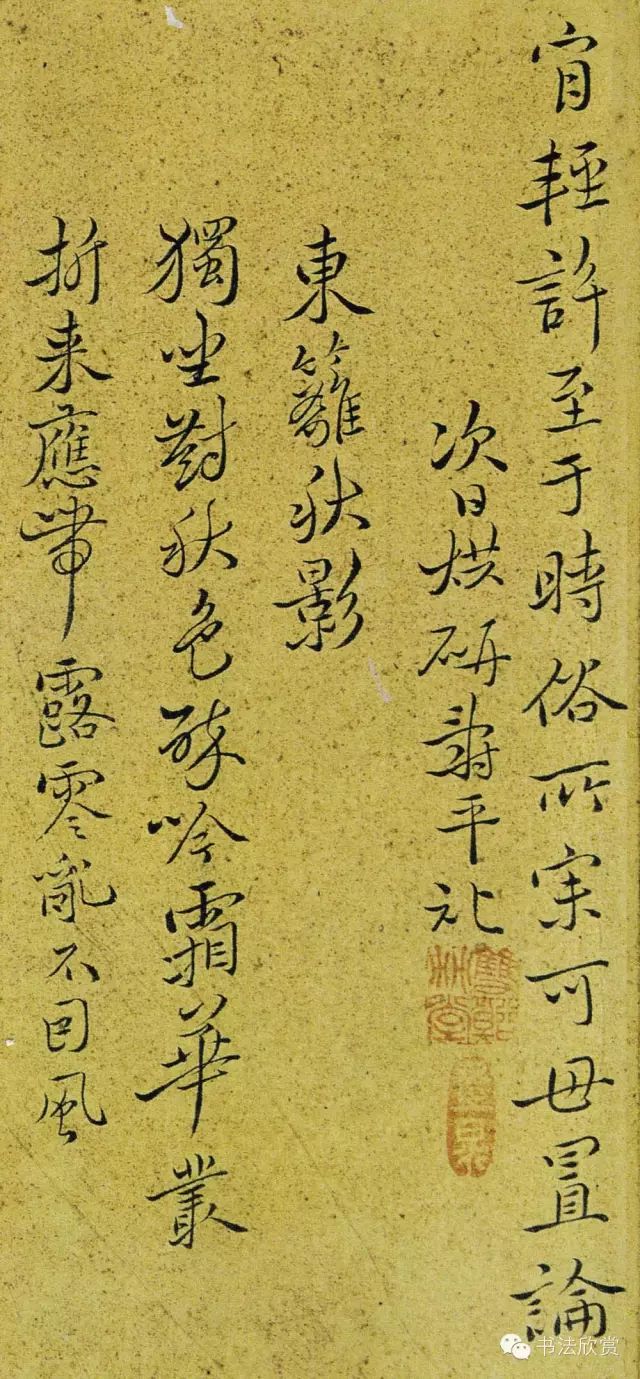 肎輕許至于時俗所宗可毋置論
次日烘研壽平記
東籬秋影
獨坐對秋色醉吟霜華叢
折来應帶露零亂不因風
书法欣赏